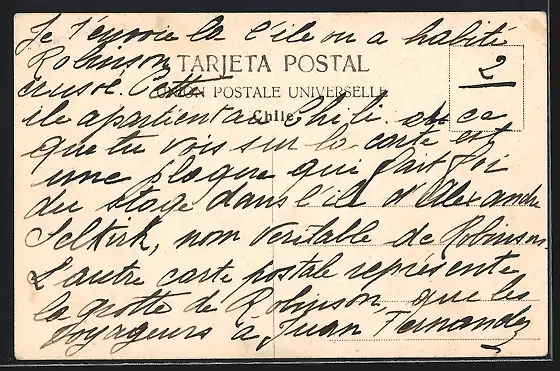 Je t'envoie la l'ile ou a habité
Robinson
TARJETA POSTAL
2
crusoé. Cette
UNION POSTALE UNIVERSELLE
Chile
ile apartient au Chili. et ce
que tu vois sur la carte est
une plaque qui fait foi
du stage dans l'ile d'Alexandre
Selkirk, nom veritable de Robinson
L'autre carte postale représente
la grotte de Robinson, que les
voyageurs à Juan Fernandez